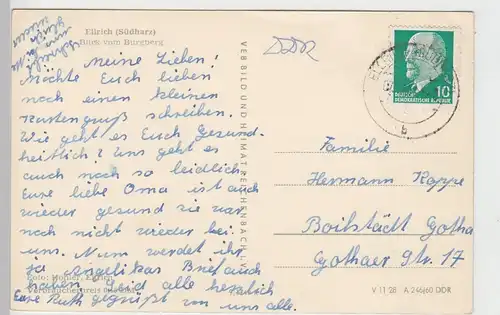 Ellrich (Südharz)
vom Burgberg
Meine Lieben!
Möchte Euch lieben
noch einen kleinen
Kartengruß schreiben.
Wie geht es Euch Gesund-
heitlich? Uns geht es
auch noch so leidlich
Eure liebe Oma ist auch
wieder gesund sie war
noch nicht wieder bei
uns. Nun werdet ihr
ja Angelikas Brief auch
haben. Seid alle herzlich
Eure Ruth gegrüßt von uns alle.
VEB BILD UND HEIMAT REICHENBACH I. V.
DDR
10
DEUTSCHE
DEMOKRATISCHE REPUBLIK
b
Familie
Hermann Koppe
Boilstädt Gotha
Gothaer Str. 17
V 11 28 A 246/60 DDR